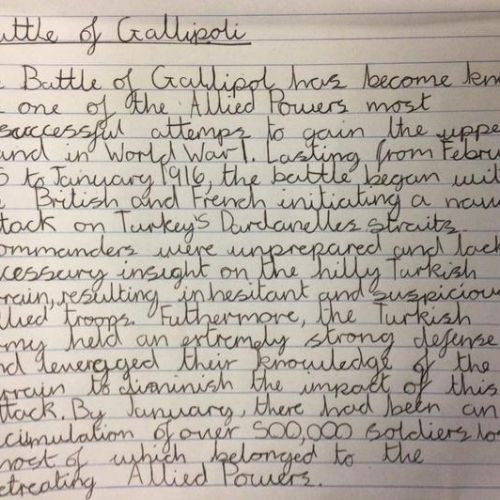 attle of Gallipoli
e Battle of Gallipol has become kno
s one of the Allied Powers most
successful attemps to gain the uppe
and in World War 1. Lasting from Februa
5 to January 1916, the battle began wit
e British and French initiating a nava
ttack on Turkey's Dardanelles straits.
ommanders were unprepared and lack
ecessary insight on the hilly Turkish
rrain, resulting in hesitant and suspiciou
llied troops. Futhermore, the Turkish
rmy held an extremely strong defense
nd leveragged their knowledge of the
rrain to diminish the impact of this
ttack. By January, there had been an
ccumulation of over 500,000 soldiers lo
most of which belonged to the
etreating Allied Powers.